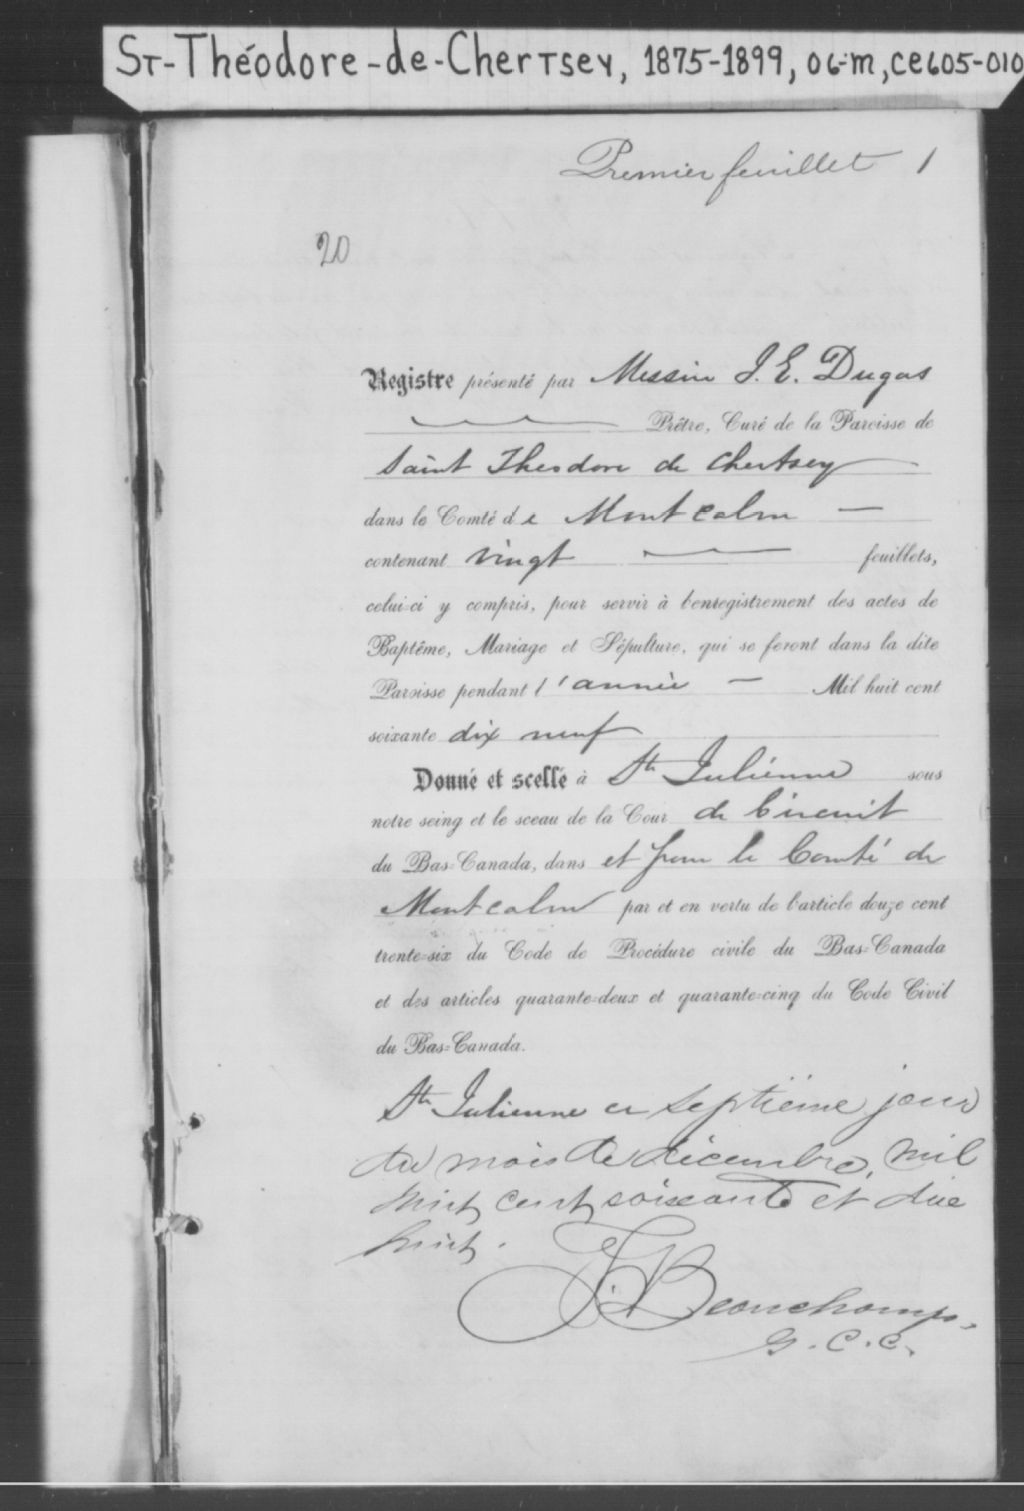 St-Théodore-de-Chertsey, 1875-1899, 06-m, CE605-010
Premier feuillet 1
20
Registre présenté par Messire J. E. Dugas
Prêtre, Curé de la Paroisse de
Saint Theodore de Chertsey
dans le Comté de Montcalm —
contenant vingt — feuillets,
celui-ci y compris, pour servir à l'enregistrement des actes de
Baptême, Mariage et Sépulture, qui se feront dans la dite
Paroisse pendant l'année — Mil huit cent
soixante dix neuf
Donné et scellé à Ste Julienne sous
notre seing et le sceau de la Cour de Circuit
du Bas-Canada, dans et pour le Comté de
Montcalm par et en vertu de l'article douze cent
trente-six du Code de Procédure civile du Bas-Canada
et des articles quarante-deux et quarante-cinq du Code Civil
du Bas-Canada.
Ste Julienne ce septième jour
du mois de décembre, mil
huit cent soixante et dix
huit.
Beauchamp,
G. C. C.